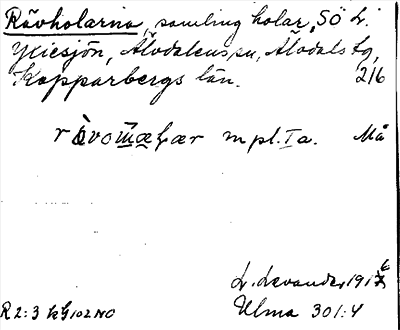 Rävholarna, samling holar, SÖ h.
Yciesjön, Älvdalens sn, Älvdals tg,
Kopparbergs län. 216
m pl. Ia. Må
L. Levander 1916
R2:3 kG102 NO
Ulma 301:4